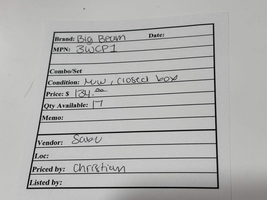 Brand: Big Beam Date:
MPN: 3WCP1
Combo/Set
Condition: New, closed box
Price: $ 124.00
Qty Available: 17
Memo:
Vendor: Sabu
Loc:
Priced by: Christian
Listed by: